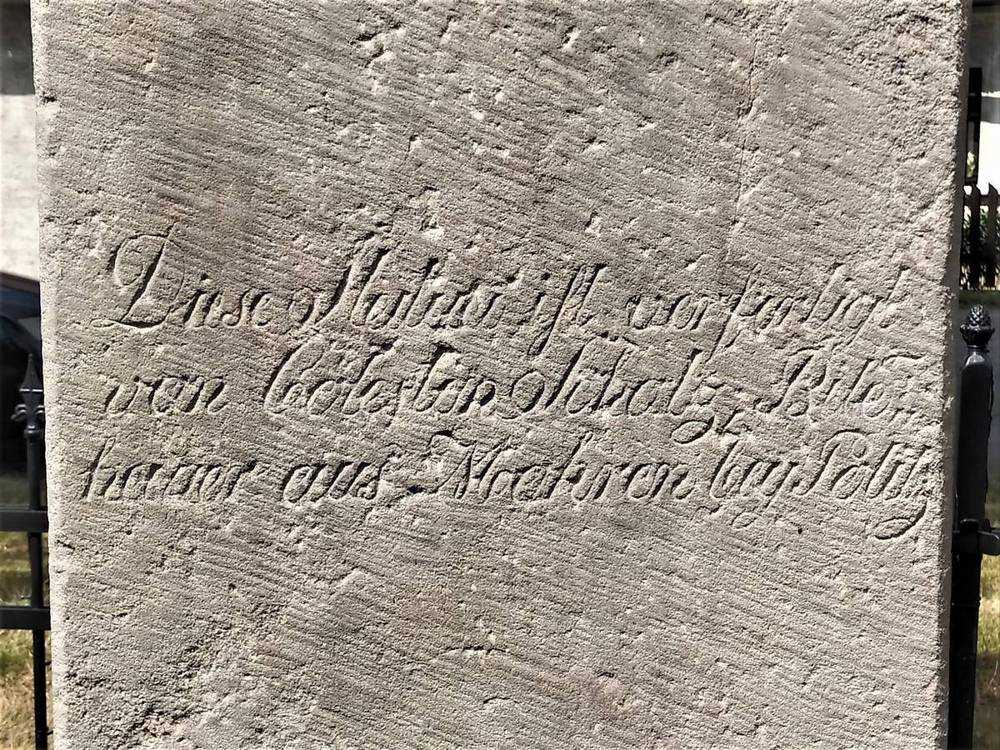 Diese Statue ist verfertigt
von Cölestin Scholz, Bild-
hauer aus Maehren bey Politz